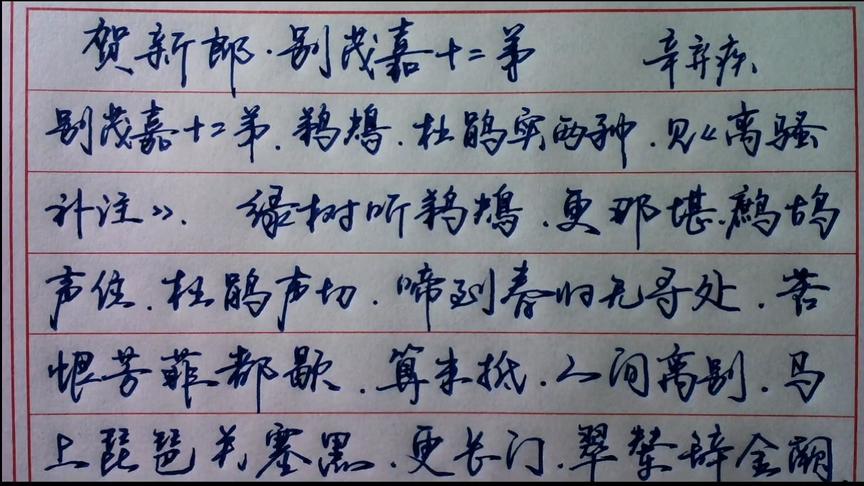 贺新郎·别茂嘉十二弟 辛弃疾
别茂嘉十二弟.鹈鴂.杜鹃实两种.见《离骚
补注》. 绿树听鹈鴂.更那堪.鹧鸪
声住.杜鹃声切.啼到春归无寻处.苦
恨芳菲都歇.算未抵.人间离别.马
上琵琶关塞黑.更长门.翠辇辞金阙.